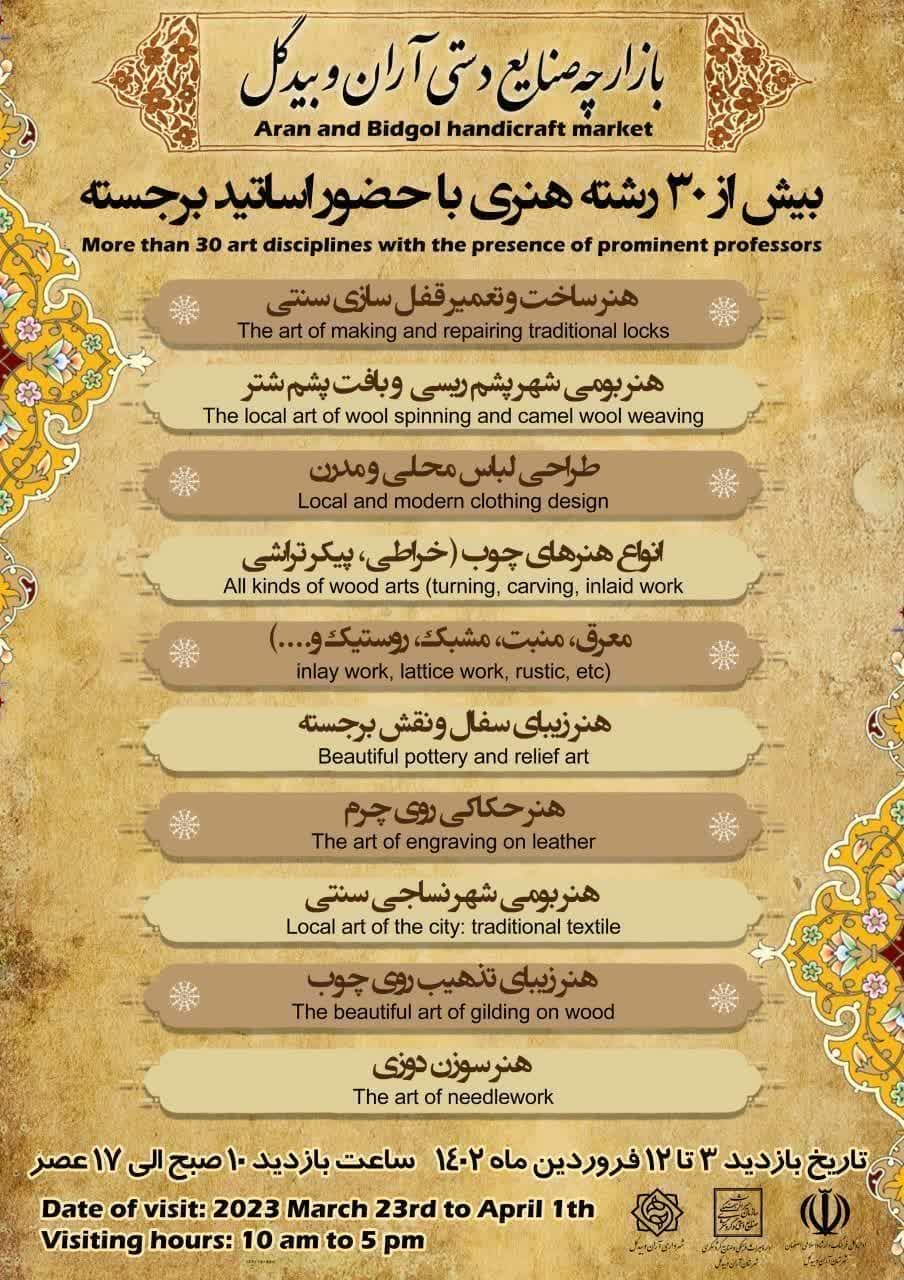 بازارچه صنایع دستی آران و بیدگل
Aran and Bidgol handicraft market
بیش از ۳۰ رشته هنری با حضور اساتید برجسته
More than 30 art disciplines with the presence of prominent professors
هنر ساخت و تعمیر قفل سازی سنتی
The art of making and repairing traditional locks
هنر بومی شهر پشم ریسی و بافت پشم شتر
The local art of wool spinning and camel wool weaving
طراحی لباس محلی و مدرن
Local and modern clothing design
انواع هنرهای چوب (خراطی، پیکر تراشی
All kinds of wood arts (turning, carving, inlaid work
معرق، منبت، مشبک، روستیک و....)
inlay work, lattice work, rustic, etc)
هنر زیبای سفال و نقش برجسته
Beautiful pottery and relief art
هنر حکاکی روی چرم
The art of engraving on leather
هنر بومی شهر نساجی سنتی
Local art of the city: traditional textile
هنر زیبای تذهیب روی چوب
The beautiful art of gilding on wood
هنر سوزن دوزی
The art of needlework
تاریخ بازدید ۳ تا ۱۲ فروردین ماه ۱۴۰۲ ساعت بازدید ۱۰ صبح الی ۱۷ عصر
Date of visit: 2023 March 23rd to April 1th
Visiting hours: 10 am to 5 pm
شهرداری آران و بیدگل